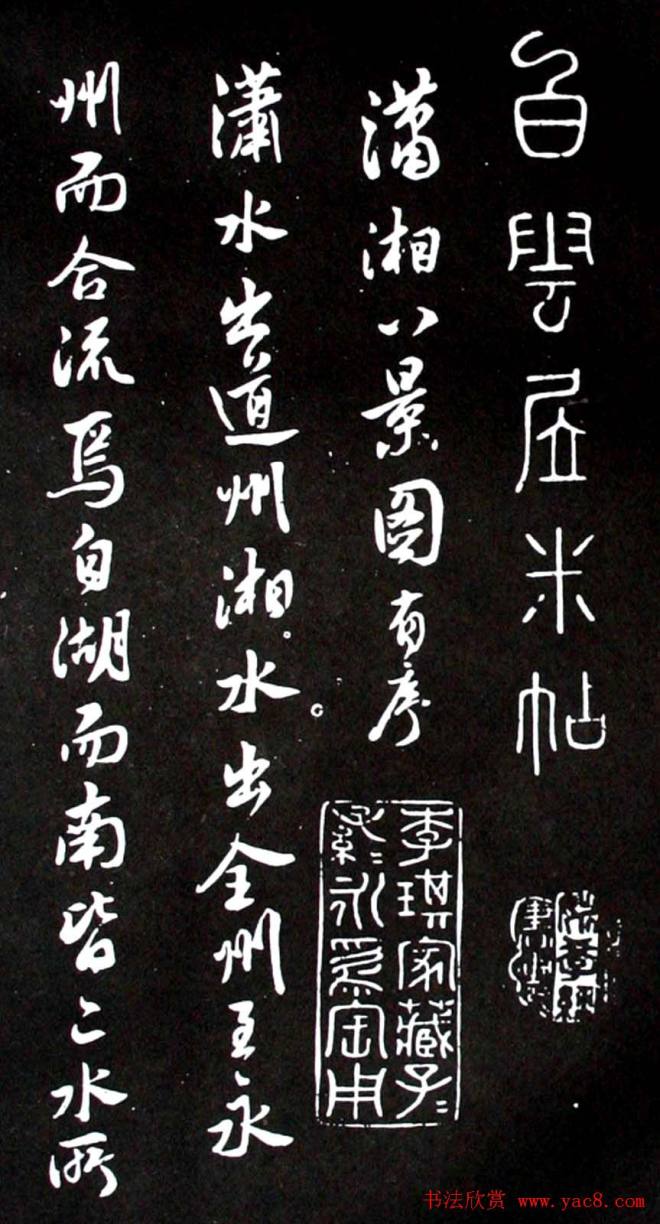 白雲居米帖
瀟湘八景圖有序
李琪家藏子〻
孫〻永為寶用
瀟水出道州湘水出全州至永
州而合流焉自湖而南皆二水所
书法欣赏 www.yac8.com